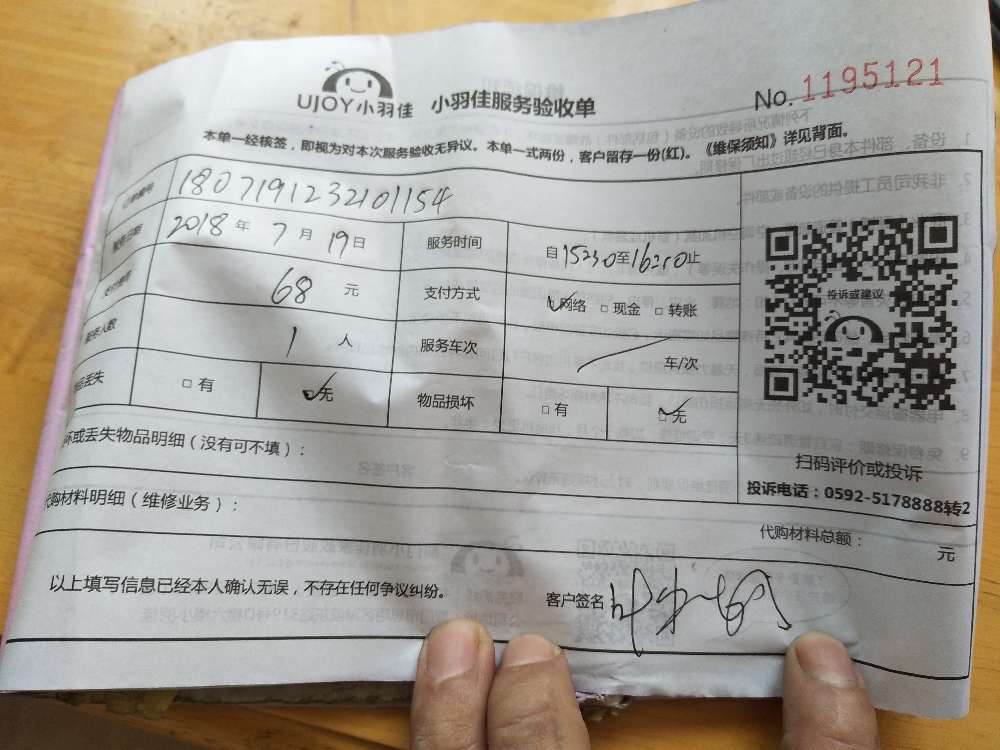 UJOY小羽佳 小羽佳服务验收单
No. 1195121
本单一经核签，即视为对本次服务验收无异议。本单一式两份，客户留存一份(红)。《维保须知》详见背面。
订单编号 1807191232101154
服务日期 2018年7月19日 服务时间 自15:30至16:00止
68元 支付方式 网络 现金 转账
人数 1人 服务车次 车/次
丢失 有 无 物品损坏 有 无
投诉或建议
坏或丢失物品明细（没有可不填）：
扫码评价或投诉
投诉电话：0592-5178888转2
代购材料明细（维修业务）：
代购材料总额： 元
以上填写信息已经本人确认无误，不存在任何争议纠纷。
客户签名